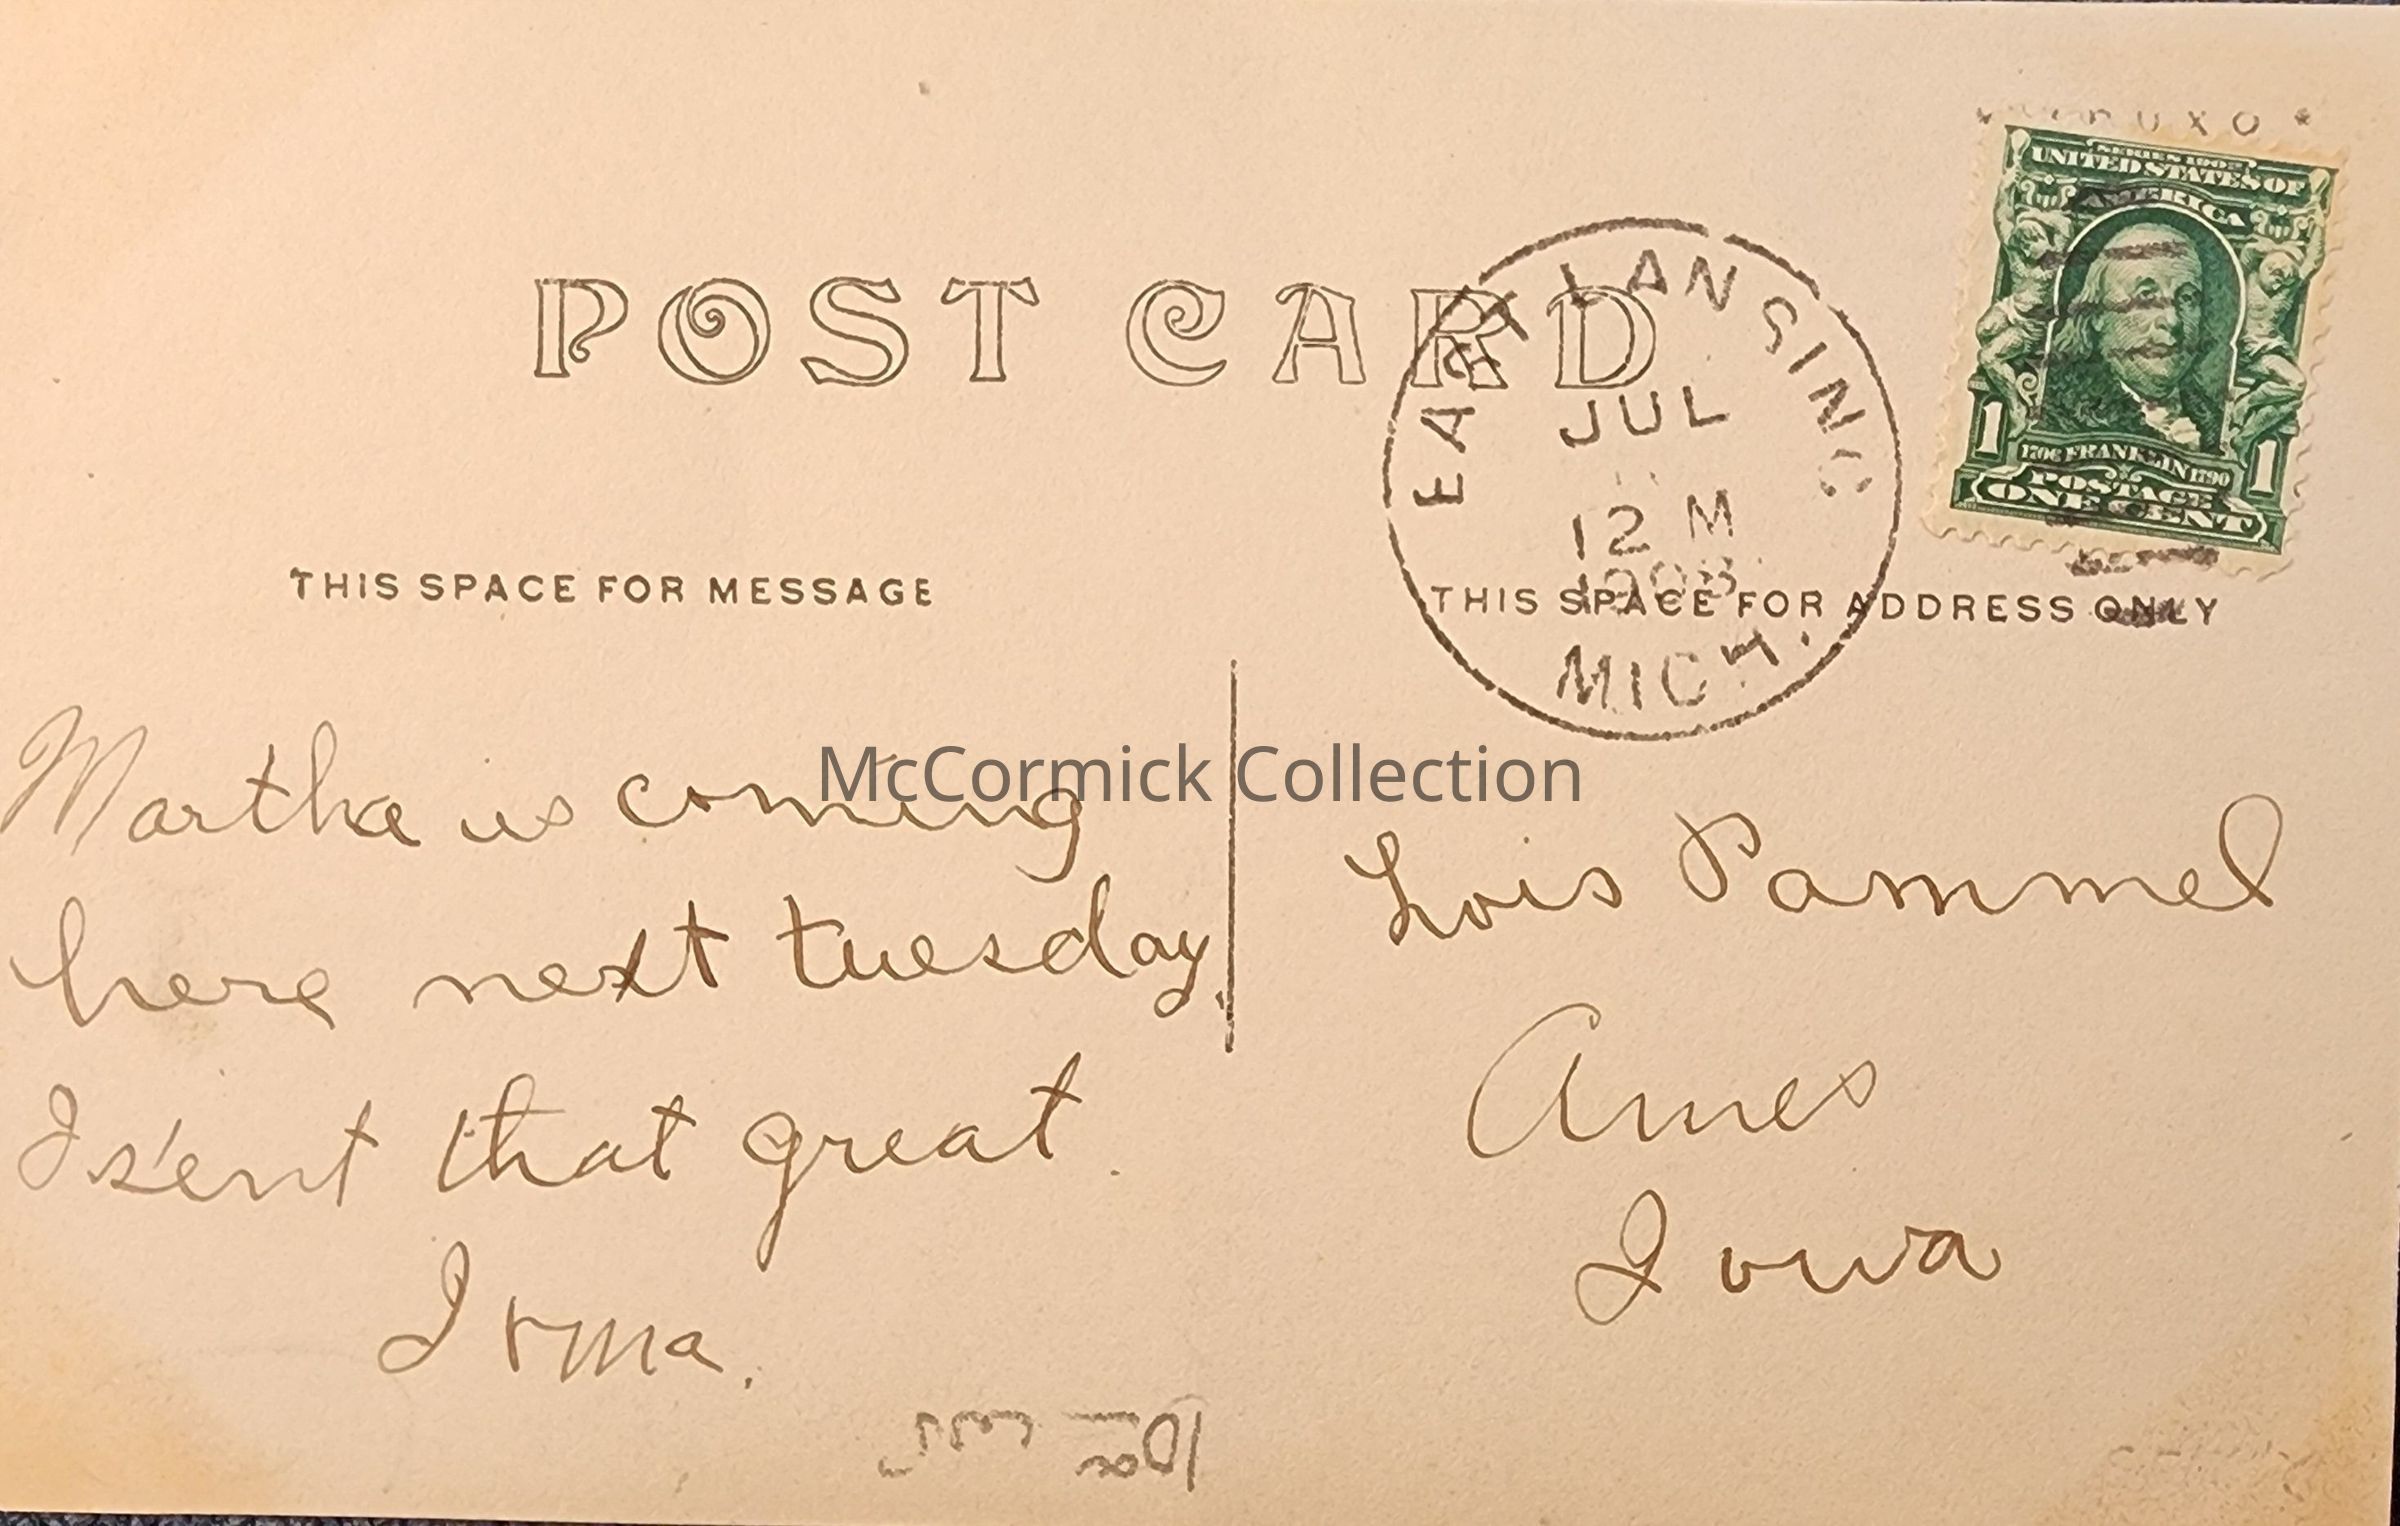 POST CARD
SERIES 1902
UNITED STATES OF
AMERICA
1706 FRANKLIN 1790
POSTAGE
1 ONE CENT 1
EAST LANSING
JUL
12 M
1908
MICH.
THIS SPACE FOR MESSAGE
THIS SPACE FOR ADDRESS ONLY
McCormick Collection
Martha is coming
here next tuesday.
Is'ent that great.
Irma.
Lois Pammel
Ames
Iowa